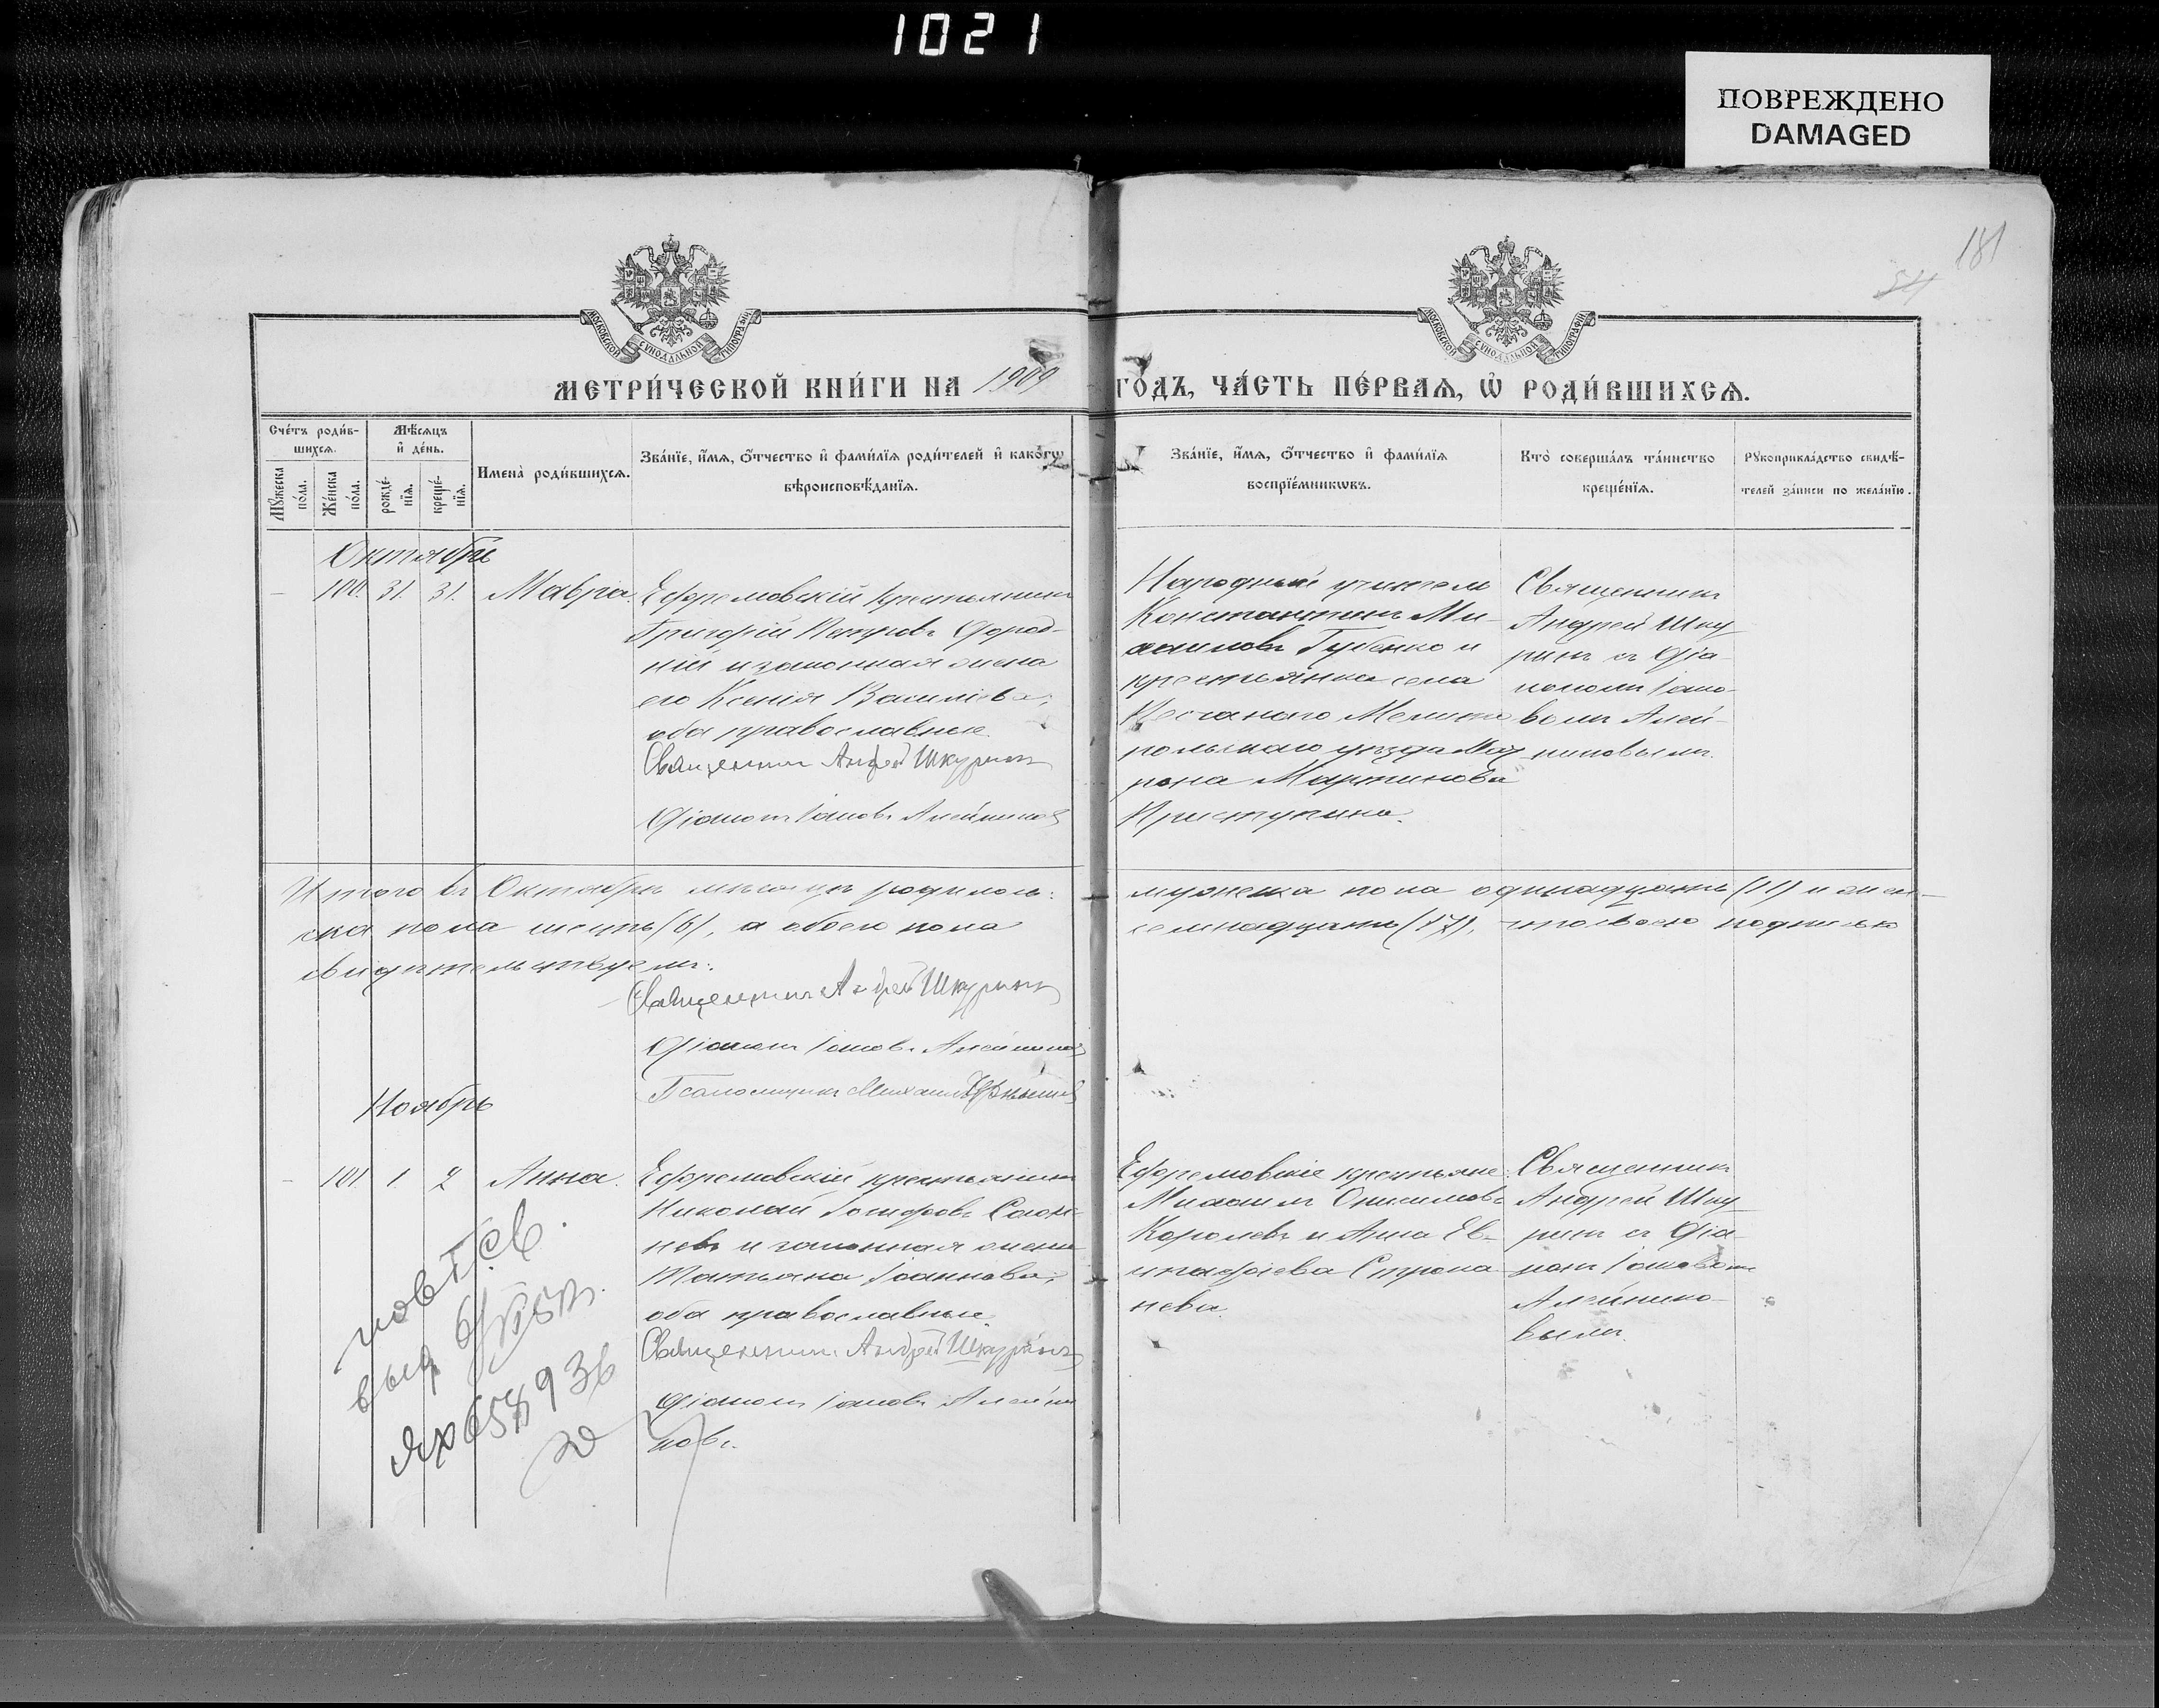 1021
ПОВРЕЖДЕНО
DAMAGED
181
54
МОСКОВСКОЙ СУНОДАЛЬНОЙ ТИПОГРАФІИ
МОСКОВСКОЙ СУНОДАЛЬНОЙ ТИПОГРАФІИ
МЕТРИ́ЧЕСКОЙ КНИ́ГИ НА 1909 ГО́ДЪ, ЧА́СТЬ ПЕ́РВАѦ, Ѡ҆ РОДИ́ВШИХСѦ.
Сче́тъ роди́в-
шихсѧ.
Мѣ́сѧцъ
и҆ де́нь.
Мꙋ́жеска по́ла.
Же́нска по́ла.
рожде́-нїѧ.
креще́-нїѧ.
Имена̀ роди́вшихсѧ.
Зва́нїе, и҆́мѧ, ѻ҆́тчество и҆ фами́лїѧ роди́телей и҆ како́гѡ
вѣроисповѣ́данїѧ.
Зва́нїе, и҆́мѧ, ѻ҆́тчество и҆ фами́лїѧ
воспрїе́мникѡвъ.
Кто̀ соверша́лъ та́инство
креще́нїѧ.
Рꙋкоприкла́дство свидѣ́-
телей за́писи по жела́нїю.
Октябрь
- 100. 31. 31. Мавра.
Ефремовскій крестьянинъ
Григорій Петровъ
ній и законная жена
его Ксенія Васильева,
оба православные.
Священникъ Андрей Шкуринъ
Діаконъ Іаковъ Алейниковъ
Народный учитель
Константинъ Ми-
хаиловъ Губенко и
крестьянка села
Песчаного Мелито
польскаго уезда Мат
рона Мартинова
Приступина.
Священникъ
Андрей Шку
ринъ съ Діа
кономъ Іако-
вомъ Алей-
никовымъ.
Итого въ Октябрѣ мѣсяцѣ родилось: мужеска пола одинадцать (11) и жен-
ска пола шесть (6), а обоего пола семнадцать (17), что своею подписью
свидѣтельствуемъ:
Священникъ Андрей Шкуринъ
Діаконъ Іаковъ Алейниковъ
Псаломщикъ Михаилъ
Ноябрь
- 101. 1. 2 Анна.
Ефремовскій крестьянинъ
Николай
невъ и законная жена
Татьяна Іоаннова,
оба православные.
Священникъ Андрей Шкуринъ
Діаконъ Іаковъ Алейни
ковъ.
Ефремовскіе крестьяне:
Михаилъ Онисимовъ
Королевъ и Анна Ев-
стафіева Строка
нева.
Священникъ
Андрей Шку
ринъ съ Діа
кон Іаковомъ
Алейнико-
вымъ.